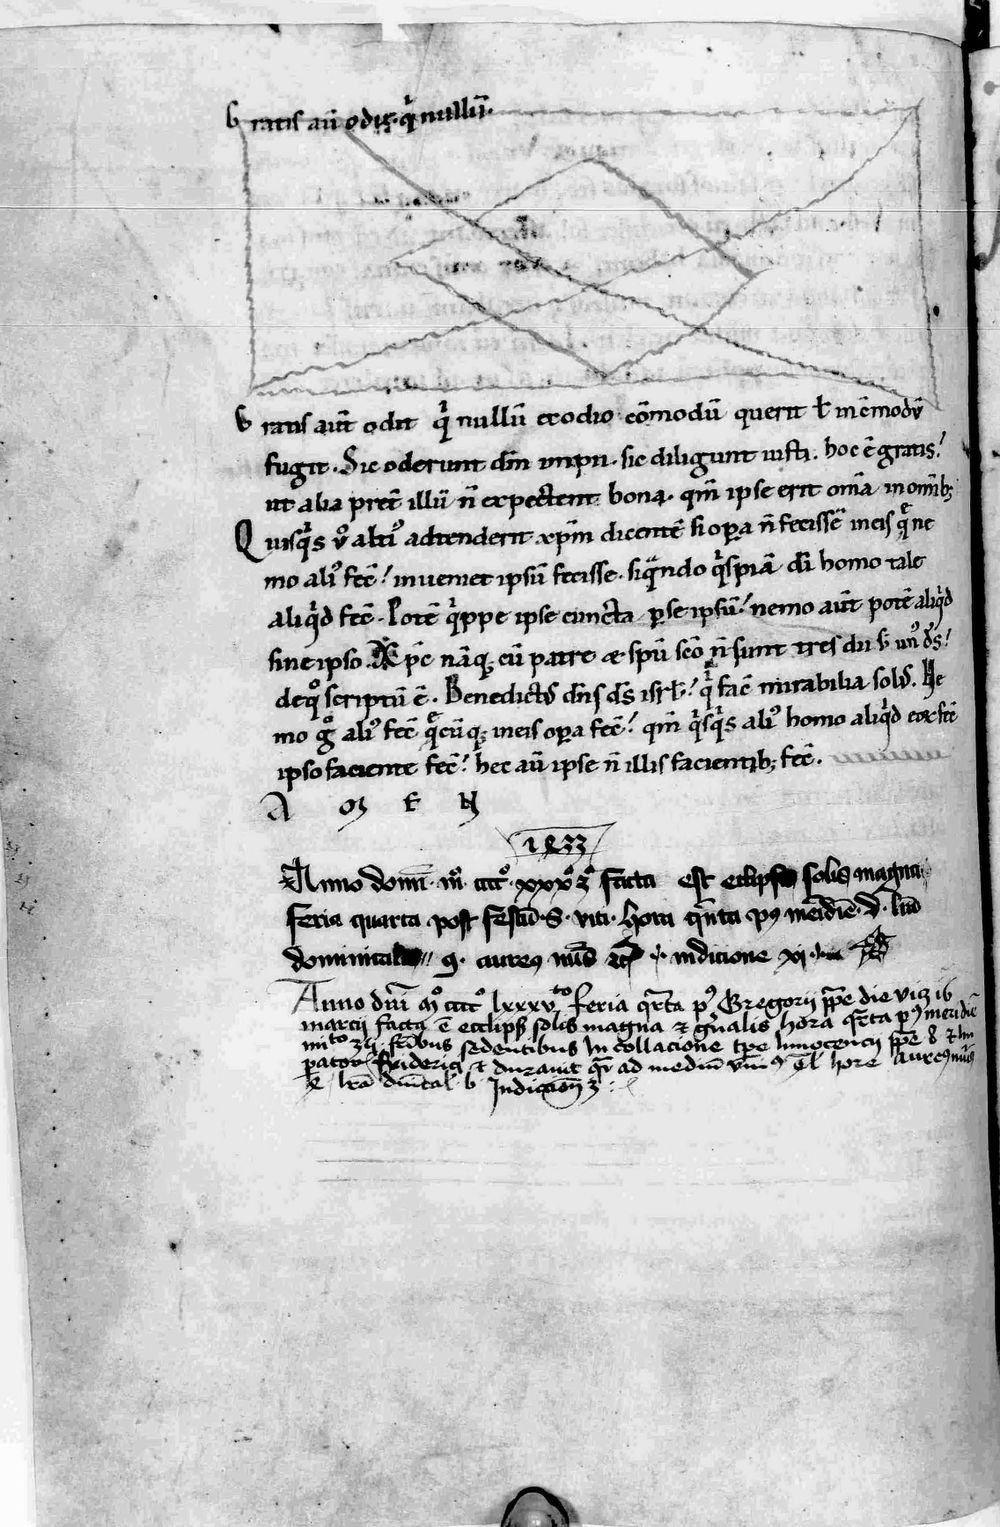 Gratis aū odiꝫ. qͥ nullū.
Gratis aut̄ odit qͥ nullū ex odio cōmodū querit ł incōmodū
fugit. Sic oderunt dn̄m impii. sic diligunt iusti. hoc ē gratis?
ut alia pret̄ illū n̄ expectent bona. qm̄ ipse erit om̄a in omīb;
Quisqͥs ů altiꝰ adtenderit xp̄m dicentē si oꝑa n̄ fecissē in eis q̄ ne
mo aliꝰ fec̄? inueniet ipsū fecisse. siqͣndo qͥspiā di homo tale
aliqͥd fec̄. Potē qͥppe ipse cuncta ꝑ se ipsū? nemo aūt potē aliqͥd
sine ipso. Xp̄c nāq; cū patre & sp̄u sc̄o n̄ sunt tres dii s; unꝰ d̄s?
de qͦ scriptū ē. Benedictꝰ dn̄s d̄s isrł? qͥ fac̄ mirabilia solꝰ. Ne
mo gͦ aliꝰ fec̄ q̄cūq; in eis oꝑa fec̄? qm̄ qͥsqͥs aliꝰ homo aliqͥd eoꝝ fec̄
ipso faciente fec̄? hec aū ipse n̄ illis facientib; fec̄.
A M E N
1433
Anno domī. mͦ. ccccͦ. xxxͦ 3ͦ facta est eclipsis solis magna
feria quarta post festū. S. viti. hora qͥnta pꝰ meridiē. d. lrā
dominicalis 9. aureꝰ nūs indicione xi.
Anno dn̄i mͦ ccccͦ lxxxvto feria qrta pꝰ Gregorii ppe die viꝫ 16
marcij facta ē ecclipsis solis magna ⁊ gn̄alis hora qrta pꝰ meridiē
frībus sedentibus In collacione tpe Innocencij ppe 8 ⁊ Im
patoris ffriderici ⁊ durauit qr ad mediū hore Aureꝰ nūꝰ
lrā dnical b Indicciōn 3